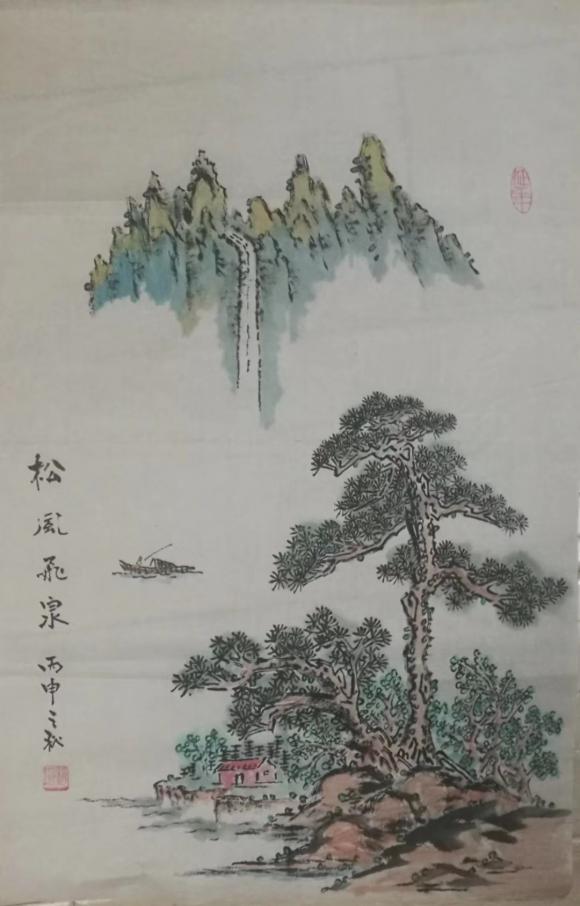 松风飛泉
丙申之秋